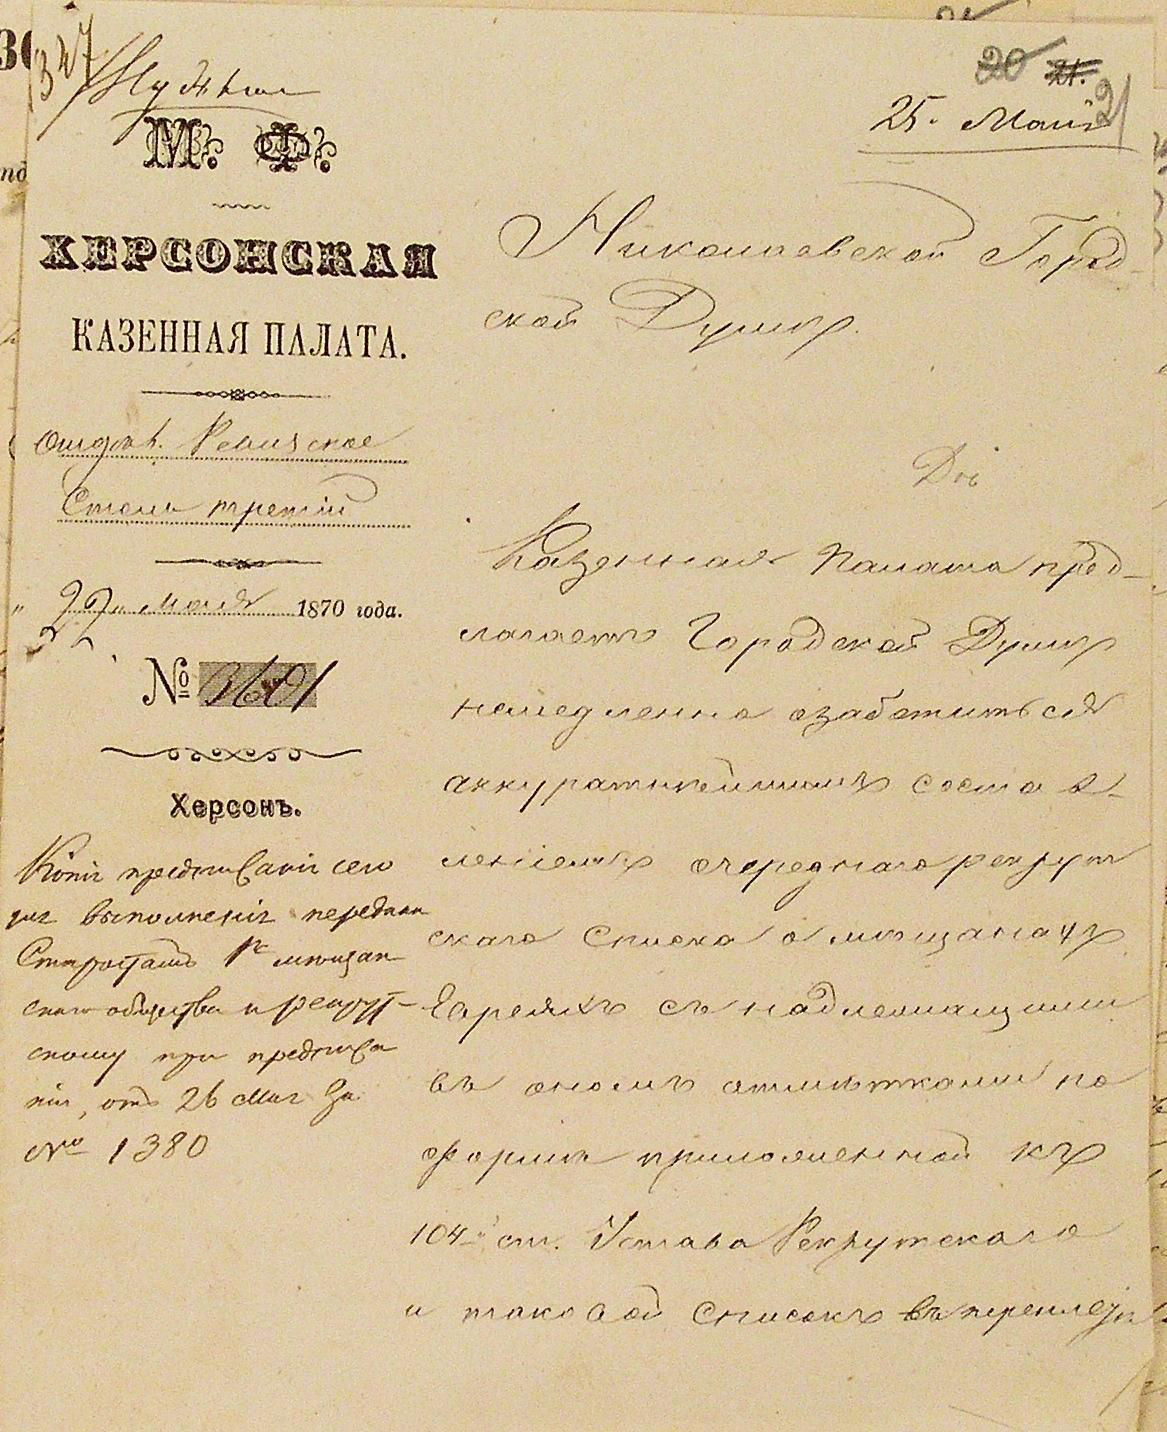 347
25. Мая
20 21.
21
М. Ф.
ХЕРСОНСКАЯ
КАЗЕННАЯ ПАЛАТА.
Отдѣл. Ревизское
Столъ третій
„ 22 „ Мая 1870 года.
№ 3691
Херсонъ.
Копіи предписанія сего
для выполненія передан
Старостамъ: мѣщан
скаго общества и рекрут-
скому при предписа
ніи, отъ 26 Мая За
№ 1380
Николаевской Город-
ской Думѣ.
Казенная Палата пред-
лагаетъ Городской Думѣ
немедленно озаботиться
аккуратнѣйшимъ состав-
леніемъ очереднаго рекрут
скаго Списка о мѣщанахъ
Евреяхъ съ надлежащими
въ ономъ отмѣтками по
формѣ приложенной къ
104й ст. Устава Рекрутскаго
и таковой Списокъ въ переплетѣ